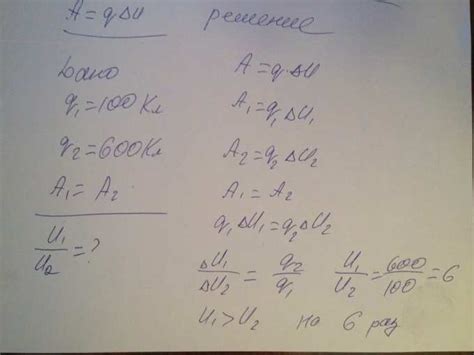 A = qΔU
решение
Дано
q₁ = 100 Кл
q₂ = 600 Кл
A₁ = A₂
U₁/U₂ = ?
A = q·ΔU
A₁ = q₁ΔU₁
A₂ = q₂ΔU₂
A₁ = A₂
q₁ΔU₁ = q₂ΔU₂
ΔU₁/ΔU₂ = q₂/q₁ U₁/U₂ = 600/100 = 6
U₁ > U₂ на 6 раз